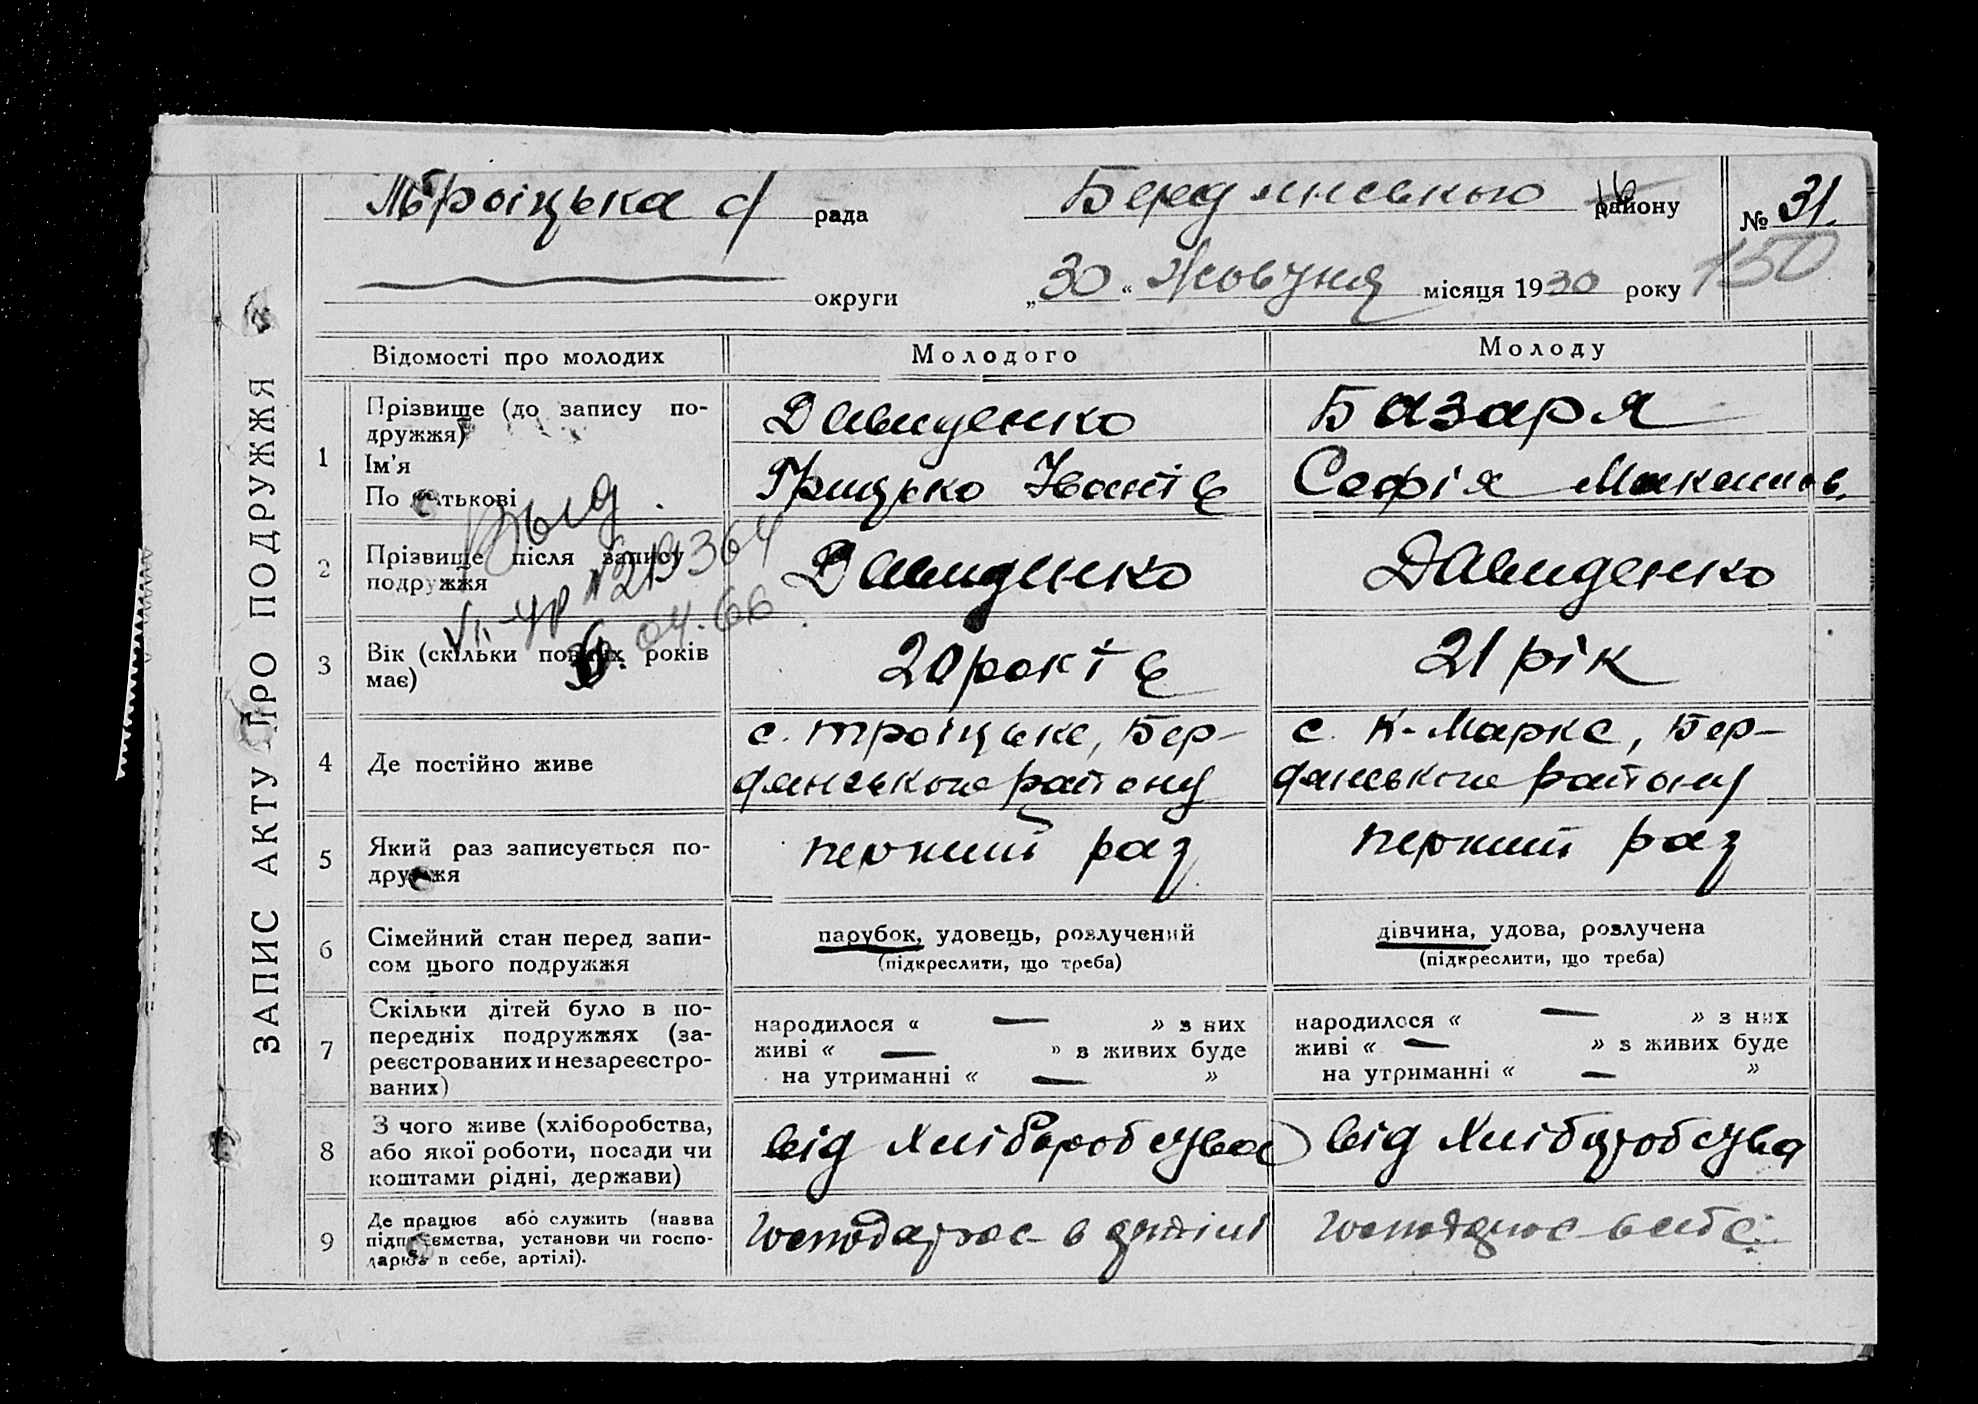 ЗАПИС АКТУ ПРО ПОДРУЖЖЯ
Троіцька с/ рада
Бердянського району
№ 31.
округи
„30“ Жовтня місяця 1930 року
150
Відомості про молодих
Молодого
Молоду
1
Прізвище (до запису по-
дружжя)
Ім'я
По батькові
Давиденко
Грицько Іванів
Базаря
Софія
2
Прізвище після запису
подружжя
Давиденко
Давиденко
Выд.
VI-ЧР №219364
04.66
3
Вік (скільки повних років
має)
20 років
21 рік
4
Де постійно живе
с. Троіцьке, Бер-
дянського району
с. К-Маркса, Бер-
дянського району
5
Який раз записується по-
дружжя
перший раз
перший раз
6
Сімейний стан перед запи-
сом цього подружжя
парубок, удовець, розлучений
(підкреслити, що треба)
дівчина, удова, розлучена
(підкреслити, що треба)
7
Скільки дітей було в по-
передніх подружжях (за-
реєстрованих и незареєстро-
ваних)
народилося « — » з них
живі « — » з живих буде
на утриманні « — »
народилося « — » з них
живі « — » з живих буде
на утриманні « — »
8
З чого живе (хліборобства,
або якої роботи, посади чи
коштами рідні, держави)
від Хліборобства
від Хліборобства
9
Де працює або служить (назва
підприємства, установи чи госпо-
дарює в себе, артілі).
господарює в артілі
господарює в себе